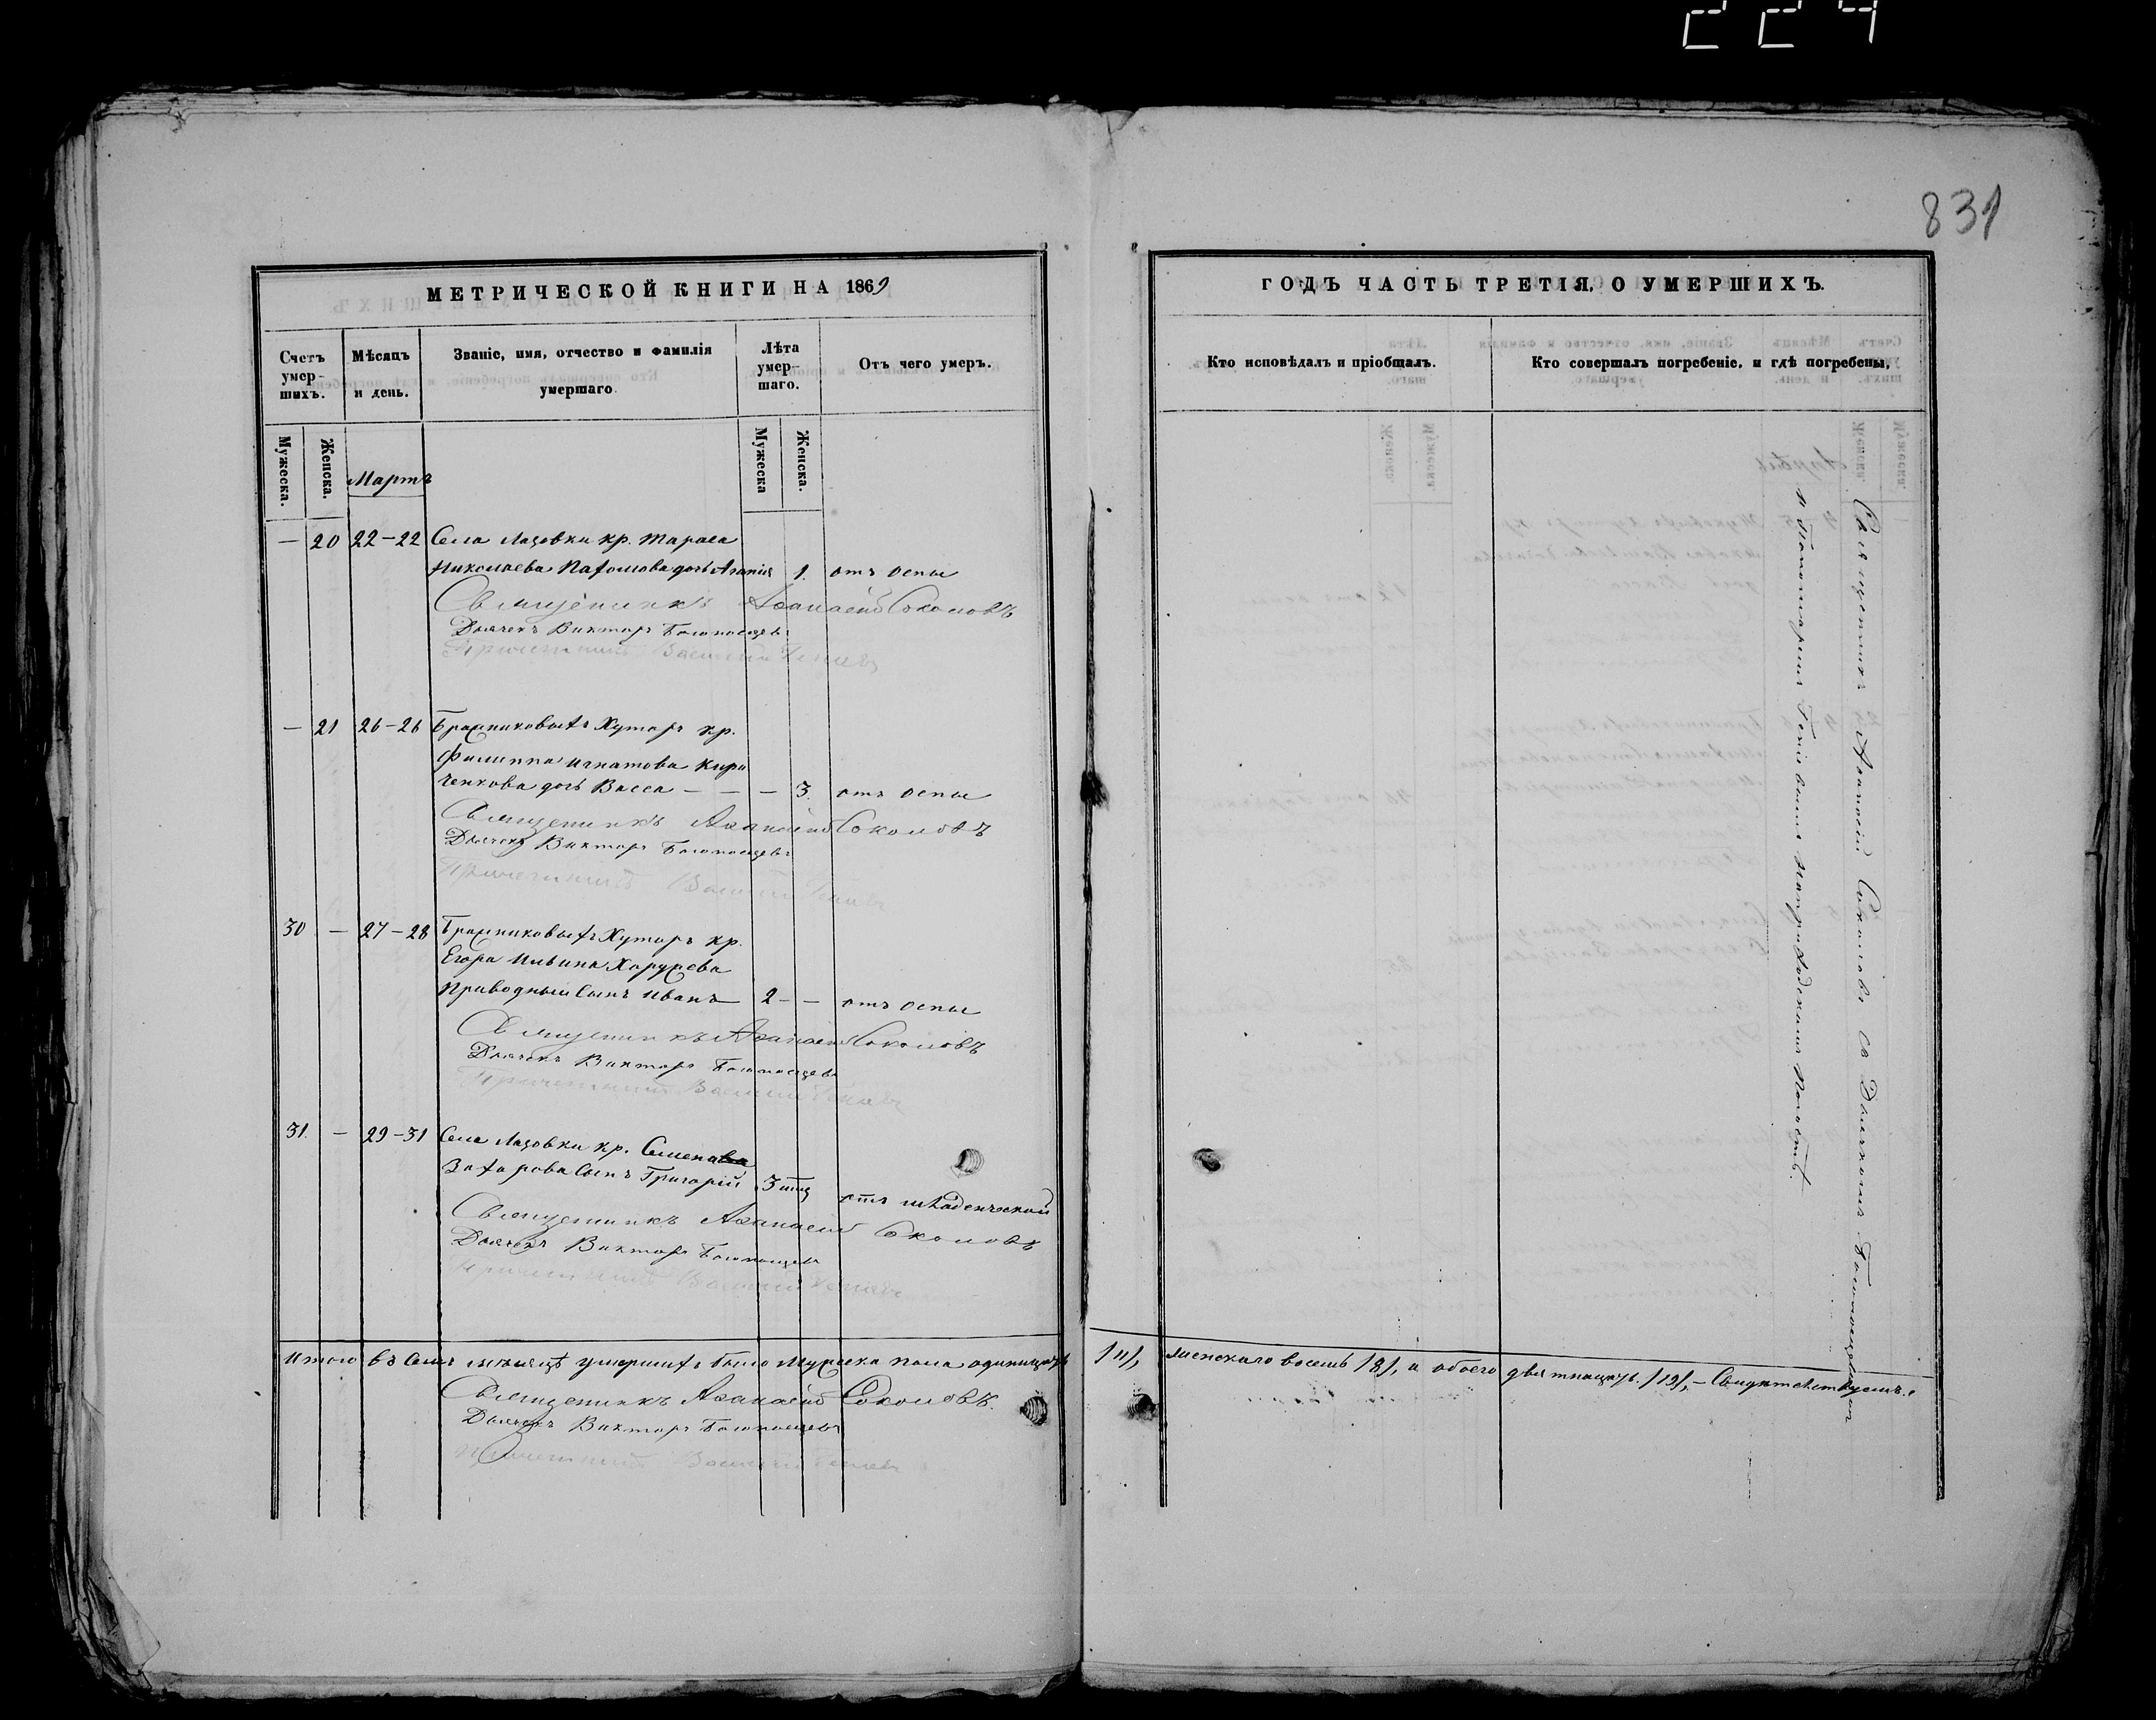 224
831
МЕТРИЧЕСКОЙ КНИГИ НА 1869
Счетъ умер- шихъ.
Мѣсяцъ и день.
Званіе, имя, отчество и фамилія умершаго.
Лѣта умер- шаго.
Отъ чего умеръ.
Мужеска.
Женска.
Мартъ
Мужеска
Женска.
— 20 22-22 Села Лазовки кр. Тараса
Николаева Пахомова дочь Агапія 1. отъ оспы
Священникъ Аѳанасій Соколовъ
Дьячекъ Викторъ Богоносцевъ
Причетникъ Василій
— 21 26-26 Бражниковыхъ Хуторъ кр.
Филиппа Игнатова Кири
ченкова дочь Васса — — — 3. отъ оспы
Священникъ Аѳанасій Соколовъ
Дьячекъ Викторъ Богоносцевъ
Причетникъ Василій
30 — 27-28 Бражниковыхъ Хуторъ кр.
Егора Ильина Харужева
Приводный Сынъ Иванъ — 2 - — отъ оспы
Священникъ Аѳанасій Соколовъ
Дьячекъ Викторъ Богоносцевъ
Причетникъ Василій
31. — 29-31 Села Лазовки кр. Семена
Захарова Сынъ Григорій 3 отъ младенческой
Священникъ Аѳанасій Соколовъ
Дьячекъ Викторъ Богоносцевъ
Причетникъ Василій
Итого въ Семъ мѣсяцѣ умершихъ было Мужеска пола одинадцать /11/, женскаго восемь /8/, а обоего девятнадцать /19/, — Свидѣтельствуемъ:
Священникъ Аѳанасій Соколовъ
Дьячекъ Викторъ Богоносцевъ
Причетникъ Василій
ГОДЪ ЧАСТЬ ТРЕТІЯ, О УМЕРШИХЪ.
Кто исповѣдалъ и пріобщалъ.
Кто совершалъ погребеніе, и гдѣ погребены.
Священникъ Аѳанасій Соколовъ съ Дьячкомъ Богоносцевымъ
и Пономаремъ на приходскомъ Погостѣ